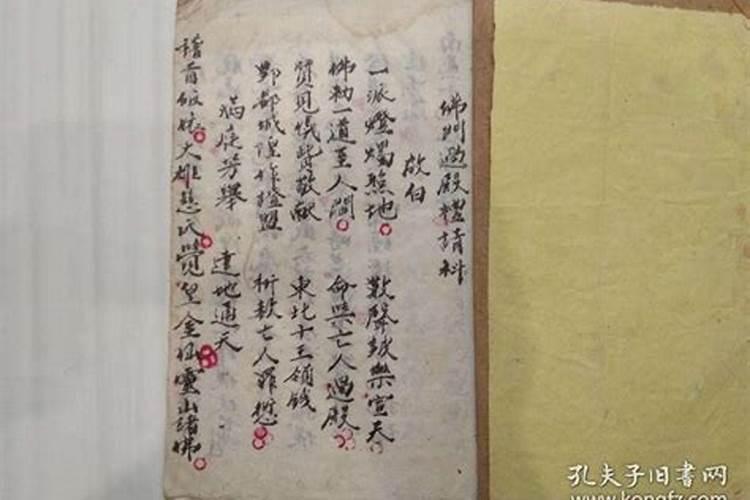 佛門過殿禮請科
啟白
一派燈燭照地 數聲鼓樂宣天
佛勅一道至人間 命與亡人過殿
賢見儀費敬献 東北十王領錢
酆都城隍作證盟 折赦亡人罪愆
滿庭芳舉 達地通天
稽首皈依大雄慈氏覺皇金仙靈山諸佛
孔夫子旧书网
www.kongfz.com